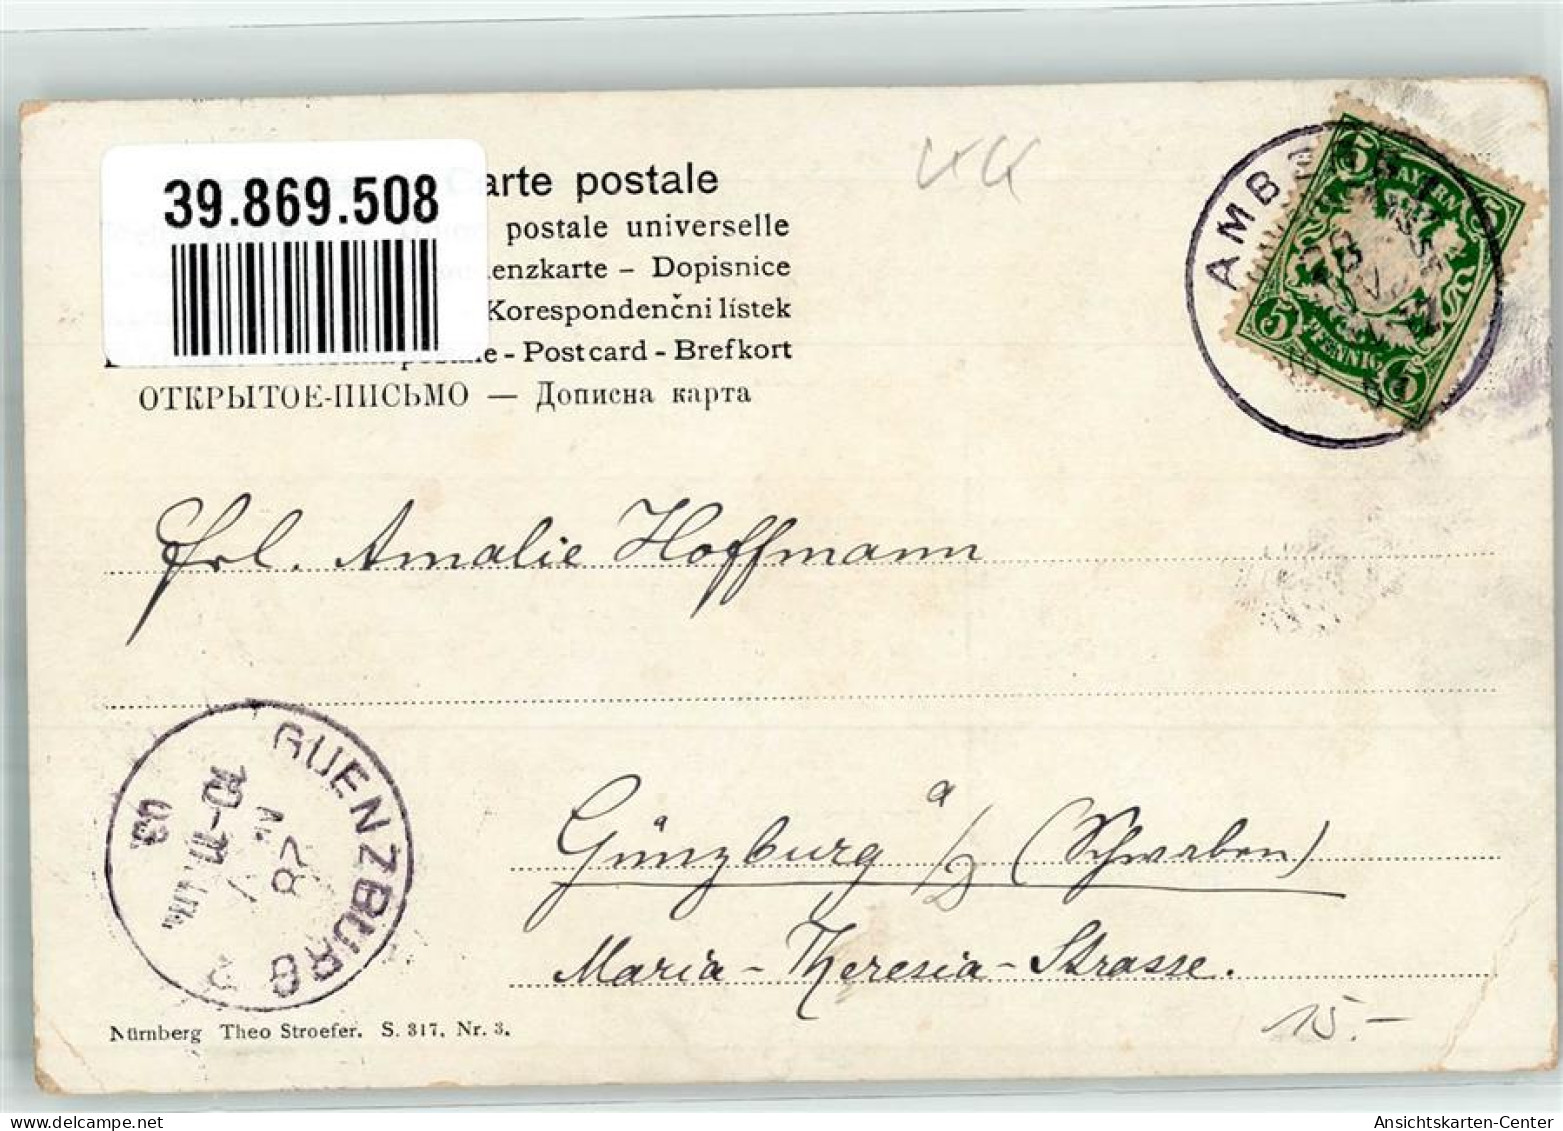 39.869.508
arte postale
postale universelle
enzkarte – Dopisnice
Korespondenční lístek
e - Postcard - Brefkort
ОТКРЫТОЕ-ПИСЬМО — Дописна карта
5 BAYERN 5
5 PFENNIG 5
Frl. Amalie Hoffmann
GUENZBURG
Günzburg a/D (Schwaben)
Maria-Theresia-Strasse.
15.-
Nürnberg Theo Stroefer. S. 317. Nr. 3.
Ansichtskarten-Center